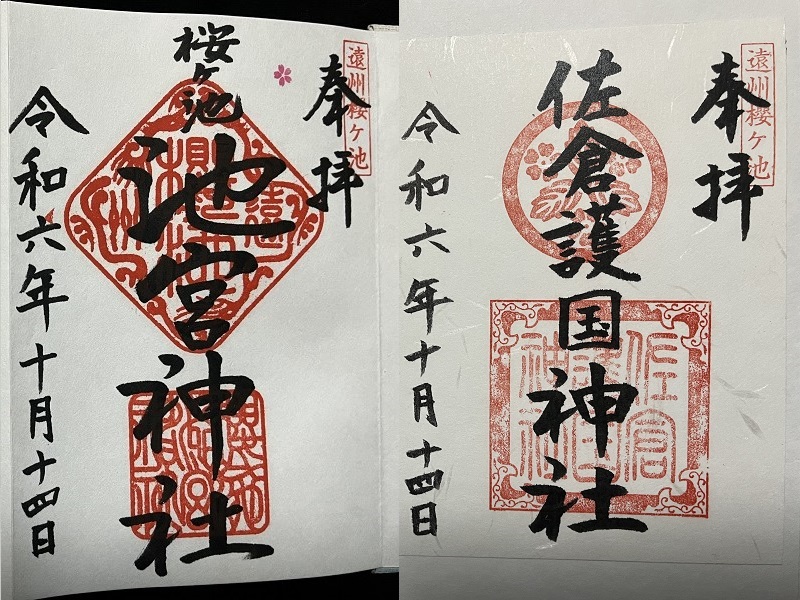 遠州櫻ケ池
奉拝
桜ケ池
池宮神社
令和六年十月十四日
遠州櫻ケ池
奉拝
佐倉護国神社
佐倉
護国
神社
令和六年十月十四日